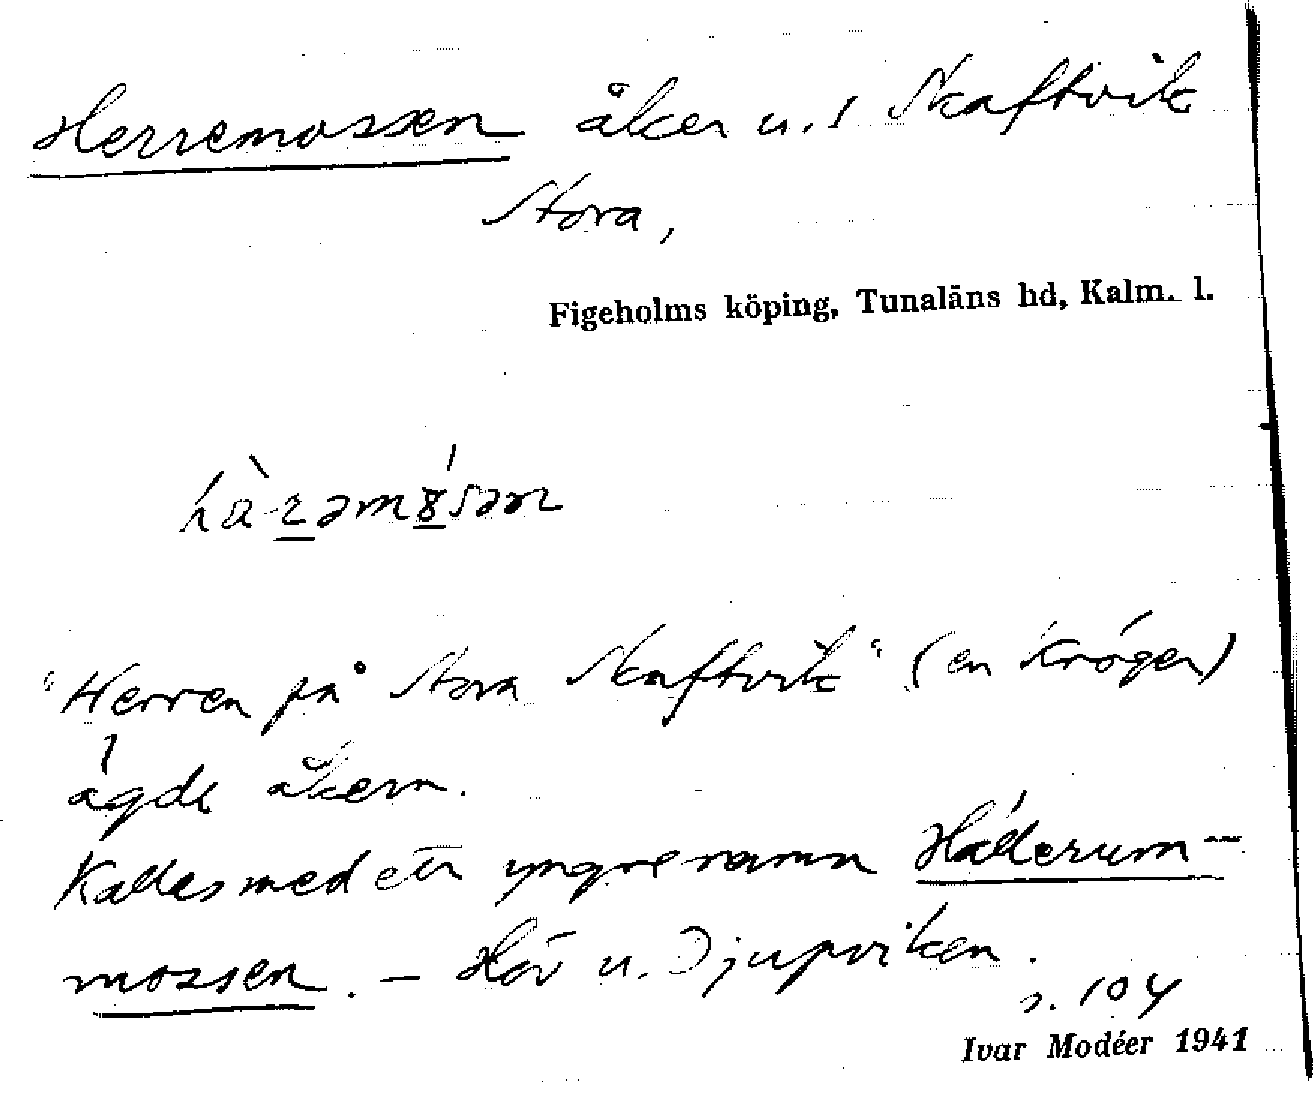 Herremossen åker u. s Skaftvik
Stora,
Figeholms köping, Tunaläns hd, Kalm. l.
hàrəmɤ́sən
"Herren på Stora Skaftvik" (en Kröger)
ägde åkern.
Kallas med ett yngre namn Hållerum-
mossen. – Hör u. Djupviken.
s. 104
Ivar Modéer 1941